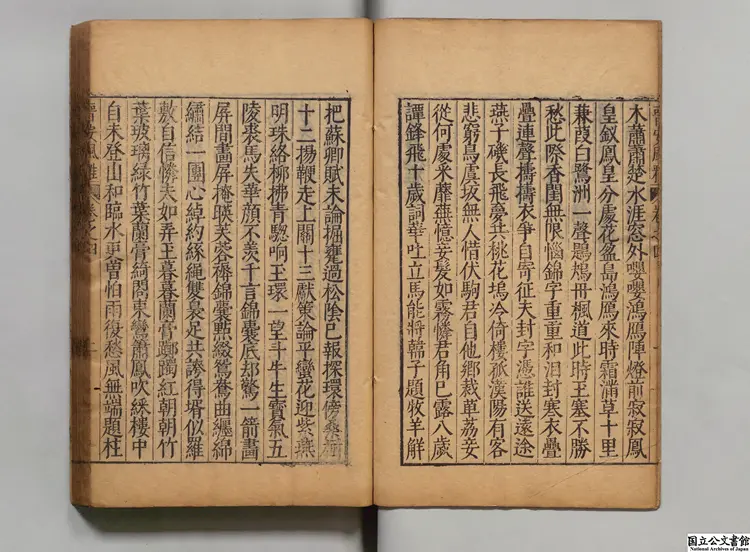 晋安風雅
卷之四
木蕭蕭楚水涯窓外嚶嚶鴻鴈陣燈前寂寂鳳
皇釵鳳皇分處花盈鴻鴈來時霜滿草十里
蒹葭白鷺洲一聲鶗鴂楓道此時玉塞不勝
愁此際香閨無限惱錦字重重和泪封寒衣疊
疊連聲擣擣衣爭自寄征夫封字憑誰送遠途
燕子磯長飛夢去桃花塢冷倚樓孤漢陽有客
悲窮鳥虞坂無人惜伏駒君自他鄉裁草荔妾
從何處采蘼蕪憶妾髮如霧憐君角巳露八歲
譚鋒飛十歲詞華吐立馬能將韓子題牧羊解
把蘇卿賦未論掘甕過松陰已報探環傍桑
十二揚鞭走上關十三獻策論平蠻花迎紫燕
明珠絡柳拂青驄响玉環一望斗牛生寶氣五
陵裘馬失華顏不羨千言錦囊底却驚一箭畫
屏間畫屏掩暎芙蓉褥錦囊㸃綴鴛鴦曲纏綿
繡結一團心綽約絲繩雙裊足共誇得壻似羅
敷自信憐夫如弄玉暮暮蘭膏躑躅紅朝朝竹
葉玻璃綠竹葉蘭膏綺閣東鸞簫鳳吹綵樓中
自来登山和臨水更曾怕雨復愁風無端題柱
晋安風雅
卷之四
国立公文書館
National Archives of Japan